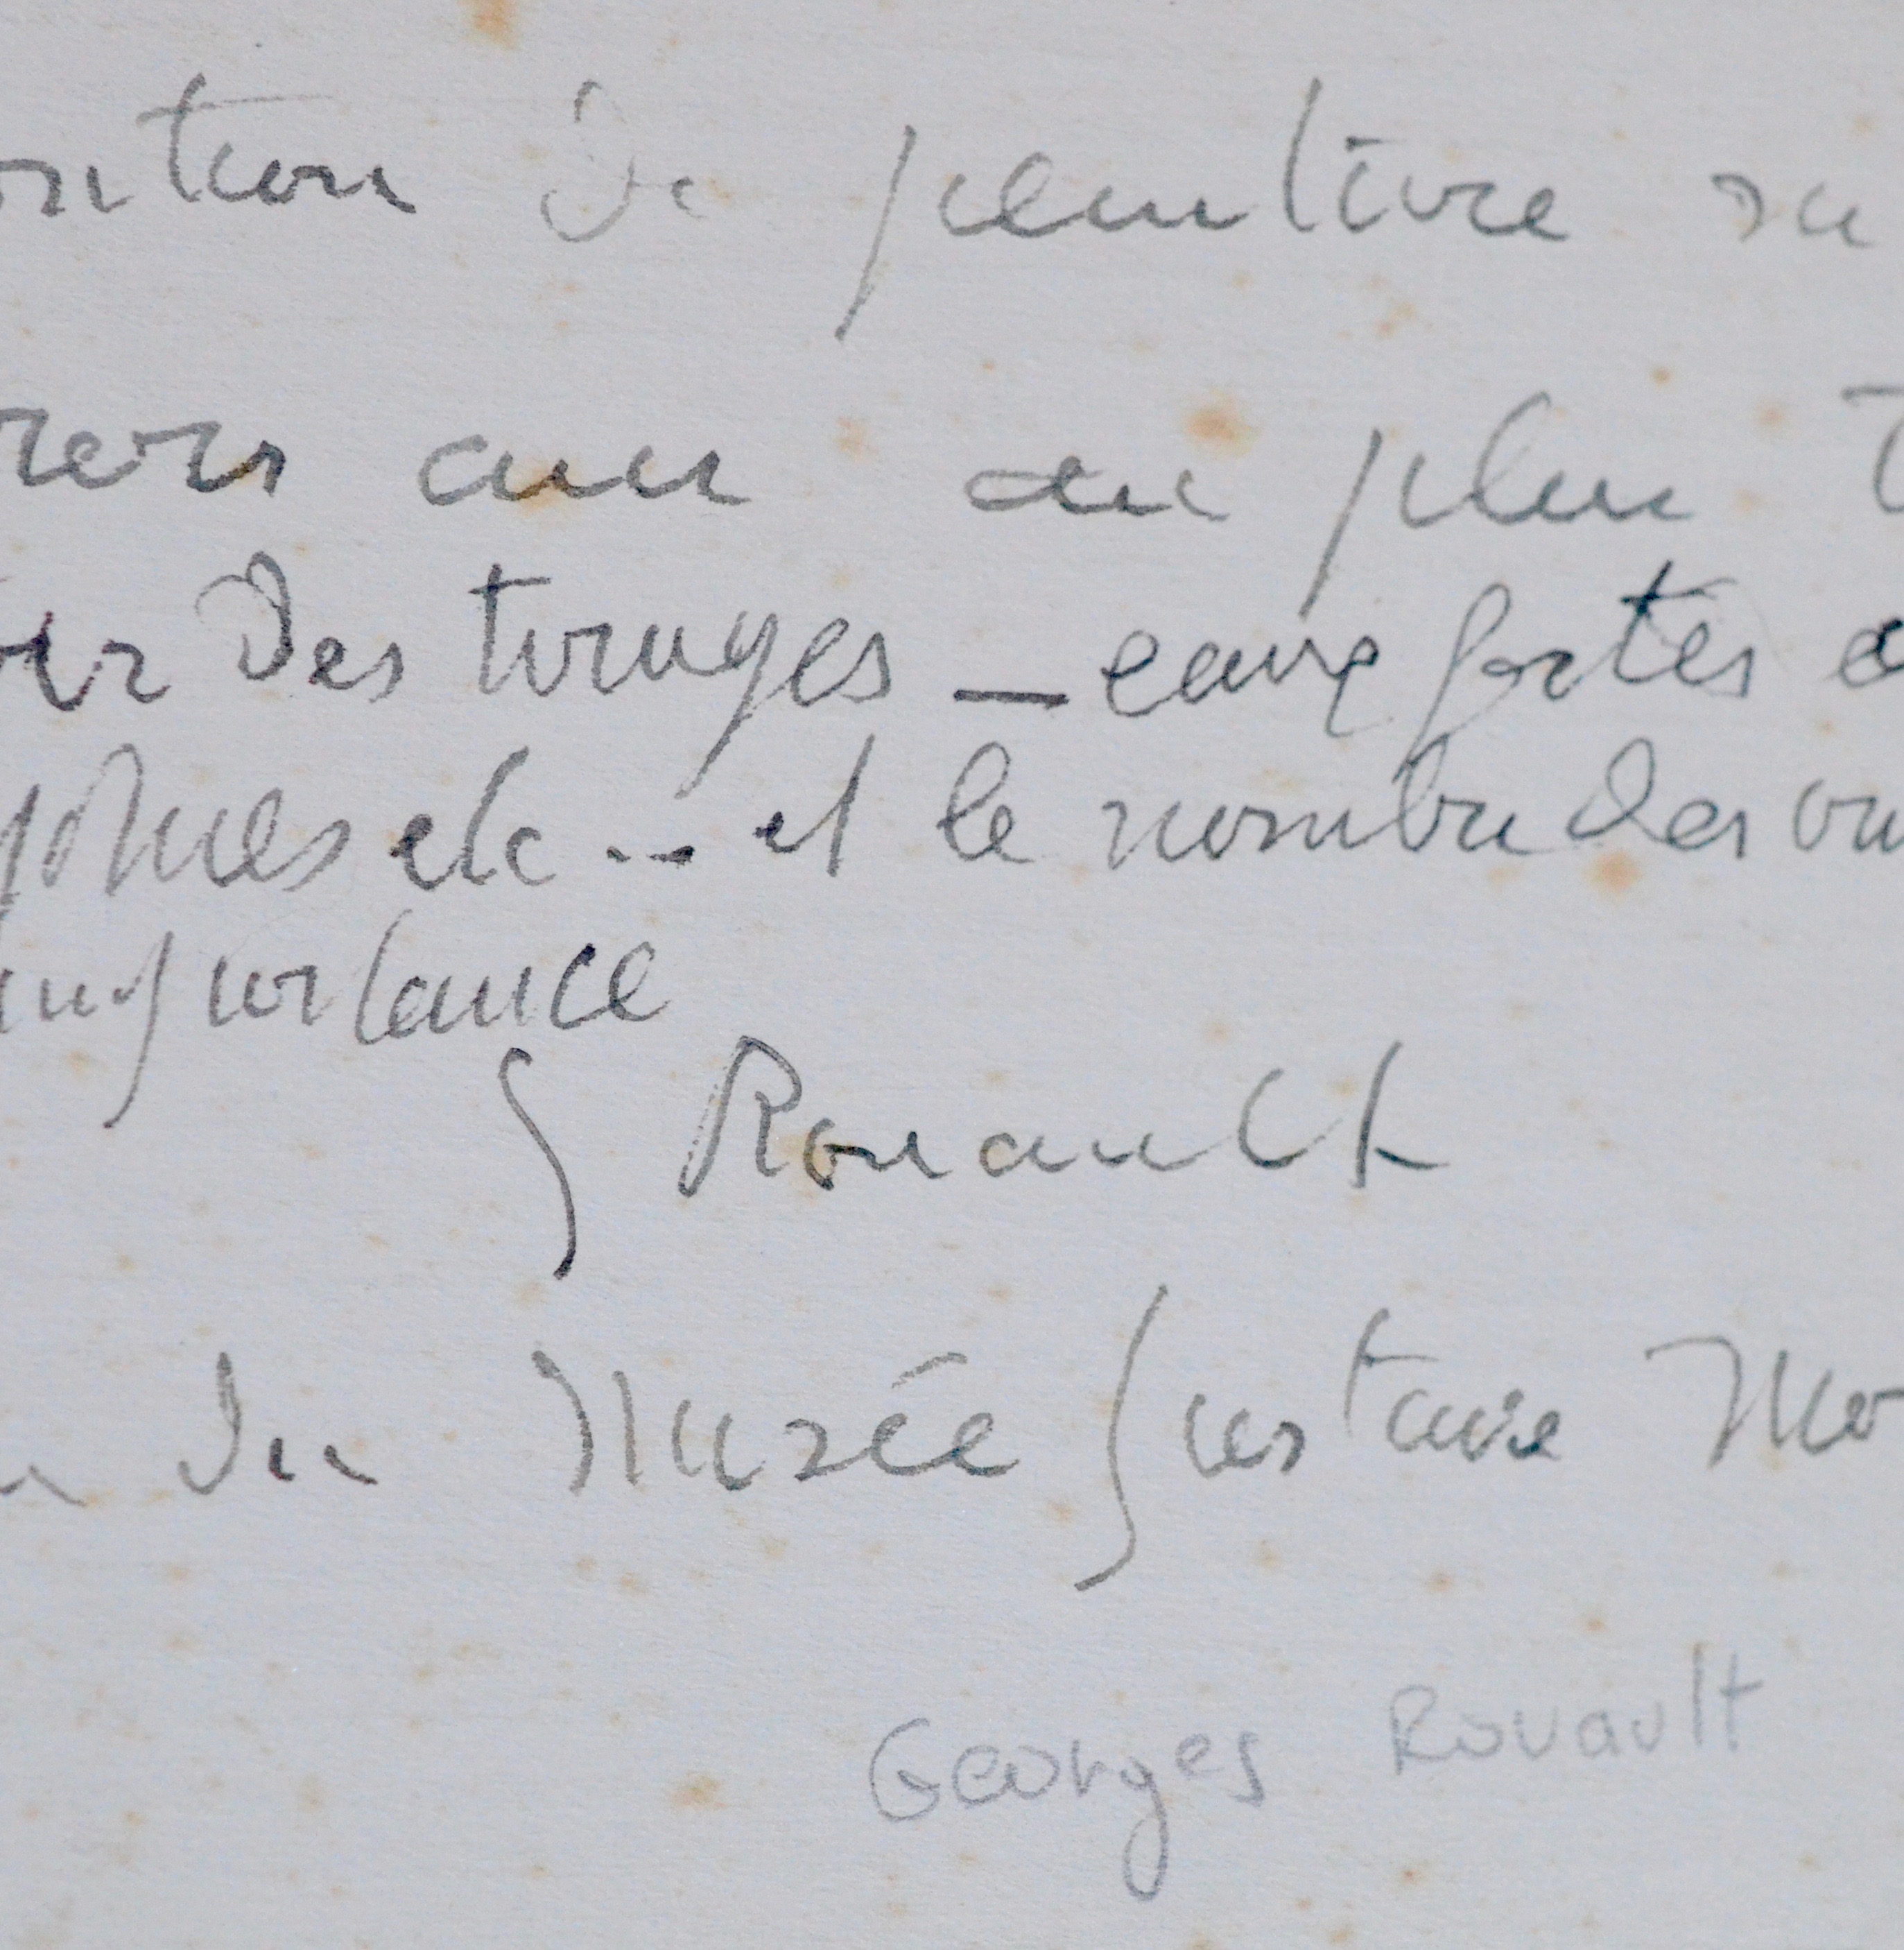 osition de peinture su
rers ans au plus t
oir des tirages — eaux fortes
etc... et le nombre des
importance
G Rouault
du Musée Gustave Mo
Georges Rouault